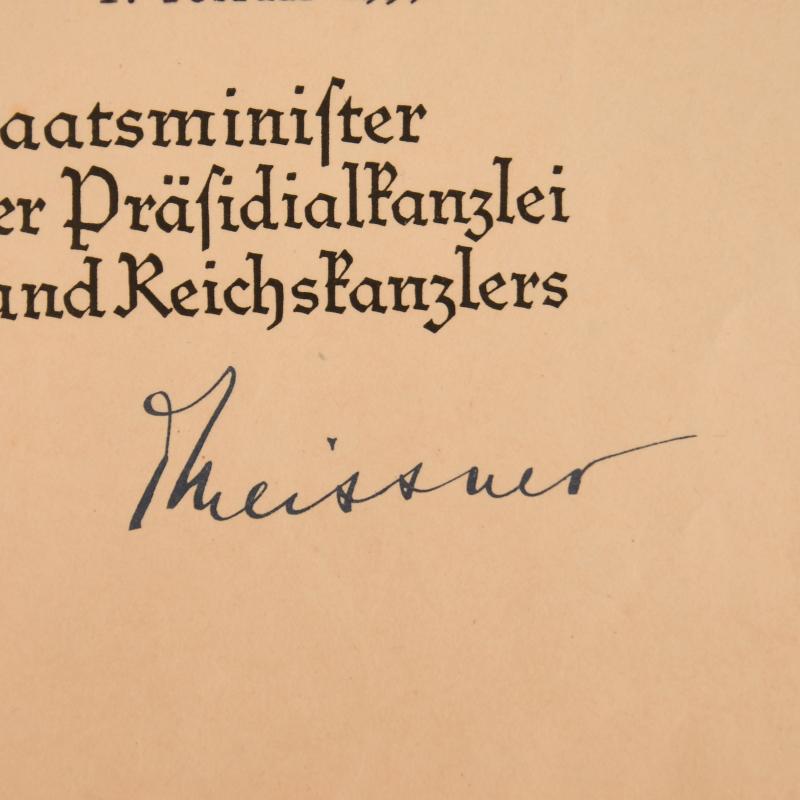 aatsminiſter
er Präſidialkanzlei
und Reichskanzlers
Meissner